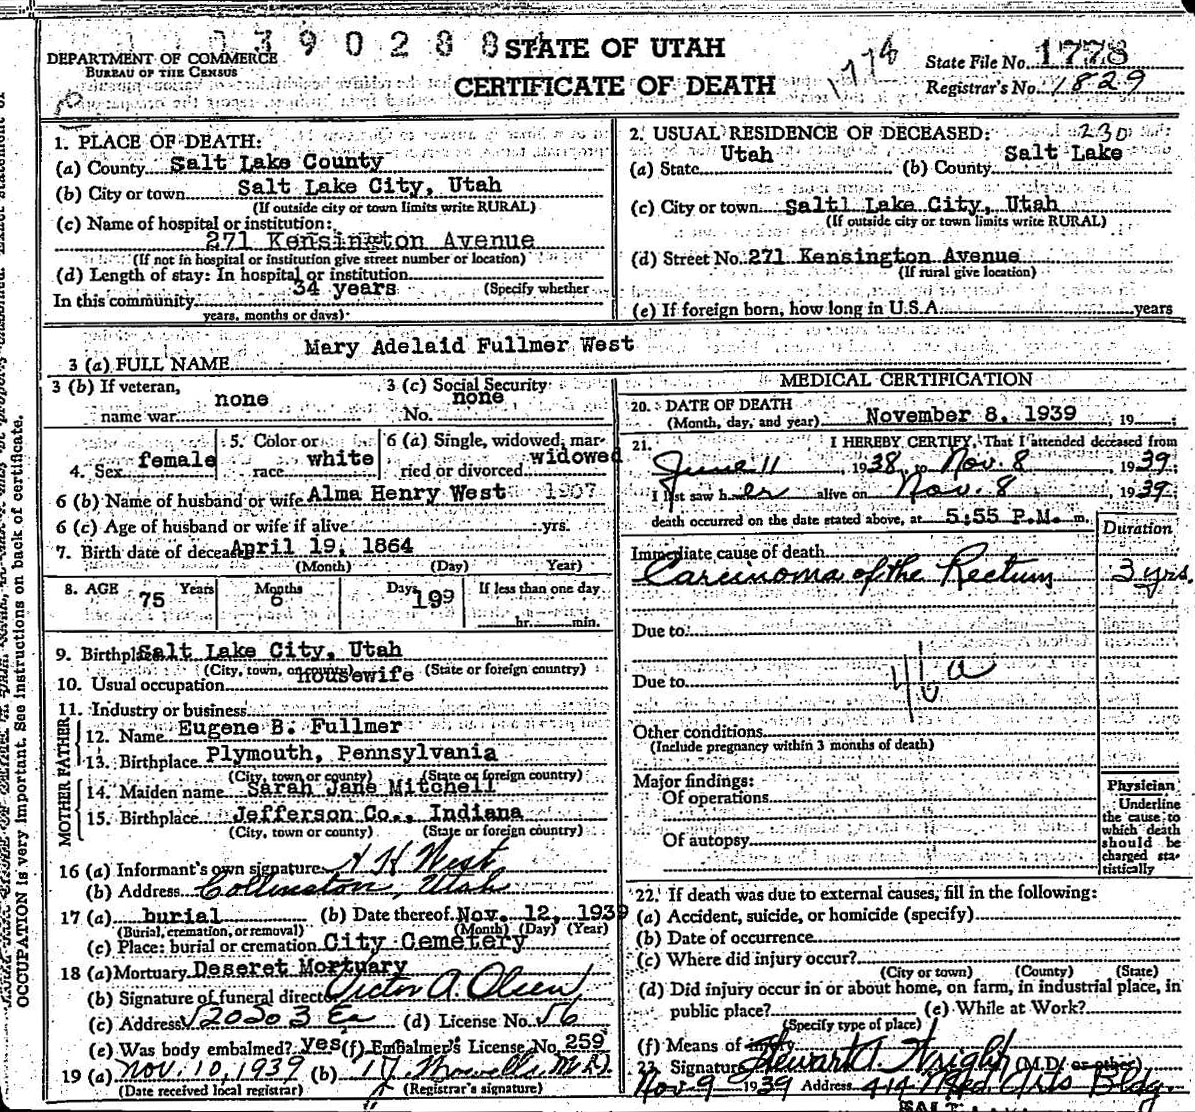 0390288
DEPARTMENT OF COMMERCE
BUREAU OF THE CENSUS
STATE OF UTAH
CERTIFICATE OF DEATH
1778
State File No. 1778
Registrar's No. 1829
1. PLACE OF DEATH:
(a) County Salt Lake County
(b) City or town Salt Lake City, Utah
(If outside city or town limits write RURAL)
(c) Name of hospital or institution:
271 Kensington Avenue
(If not in hospital or institution give street number or location)
(d) Length of stay: In hospital or institution
34 years (Specify whether
In this community
years, months or days)
2. USUAL RESIDENCE OF DECEASED: 230
(a) State Utah (b) County Salt Lake
(c) City or town Saltl Lake City, Utah
(If outside city or town limits write RURAL)
(d) Street No. 271 Kensington Avenue
(If rural give location)
(e) If foreign born, how long in U.S.A. years
3 (a) FULL NAME Mary Adelaid Fullmer West
3 (b) If veteran,
name war none
3 (c) Social Security
No. none
4. Sex female
5. Color or
race white
6 (a) Single, widowed, mar-
ried or divorced widowed
6 (b) Name of husband or wife Alma Henry West 1907
6 (c) Age of husband or wife if alive yrs.
7. Birth date of decea April 19, 1864
(Month) (Day) Year)
8. AGE 75 Years Months 6 Days 199 If less than one day
hr. min.
9. Birthpla Salt Lake City, Utah
(City, town, or county) (State or foreign country)
10. Usual occupation housewife
11. Industry or business
FATHER
12. Name Eugene B. Fullmer
13. Birthplace Plymouth, Pennsylvania
(City, town or county) (State or foreign country)
MOTHER
14. Maiden name Sarah Jane Mitchell
15. Birthplace Jefferson Co., Indiana
(City, town or county) (State or foreign country)
16 (a) Informant's own signature A H West
(b) Address Collinston, Utah
17 (a) burial (b) Date thereof Nov. 12, 1939
(Burial, cremation, or removal) (Month) (Day) (Year)
(c) Place: burial or cremation City Cemetery
18 (a) Mortuary Deseret Mortuary
(b) Signature of funeral director Victor A. Olsen
(c) Address (d) License No. 56
(e) Was body embalmed? yes (f) Embalmer's License No. 259
19 (a) Nov. 10, 1939 (b) M.D.
(Date received local registrar) (Registrar's signature)
MEDICAL CERTIFICATION
20. DATE OF DEATH
(Month, day, and year) November 8, 1939, 19
21. I HEREBY CERTIFY, That I attended deceased from
June 11, 1938, to Nov. 8, 1939
I last saw her alive on Nov. 8, 1939
death occurred on the date stated above, at 5:55 P.M. m.
Duration
Immediate cause of death
Carcinoma of the Rectum 3 yrs.
Due to
Due to
Other conditions
(Include pregnancy within 3 months of death)
Major findings:
Of operations
Of autopsy
Physician
Underline
the cause to
which death
should be
charged sta-
tistically
22. If death was due to external causes, fill in the following:
(a) Accident, suicide, or homicide (specify)
(b) Date of occurrence
(c) Where did injury occur?
(City or town) (County) (State)
(d) Did injury occur in or about home, on farm, in industrial place, in
public place? (e) While at Work?
(Specify type of place)
(f) Means of injury
23. Signature Stewart A. Wright (M.D. or other)
Nov 9 1939 Address 414 Med. Arts Bldg.
SALT
OCCUPATION is very important. See instructions on back of certificate.